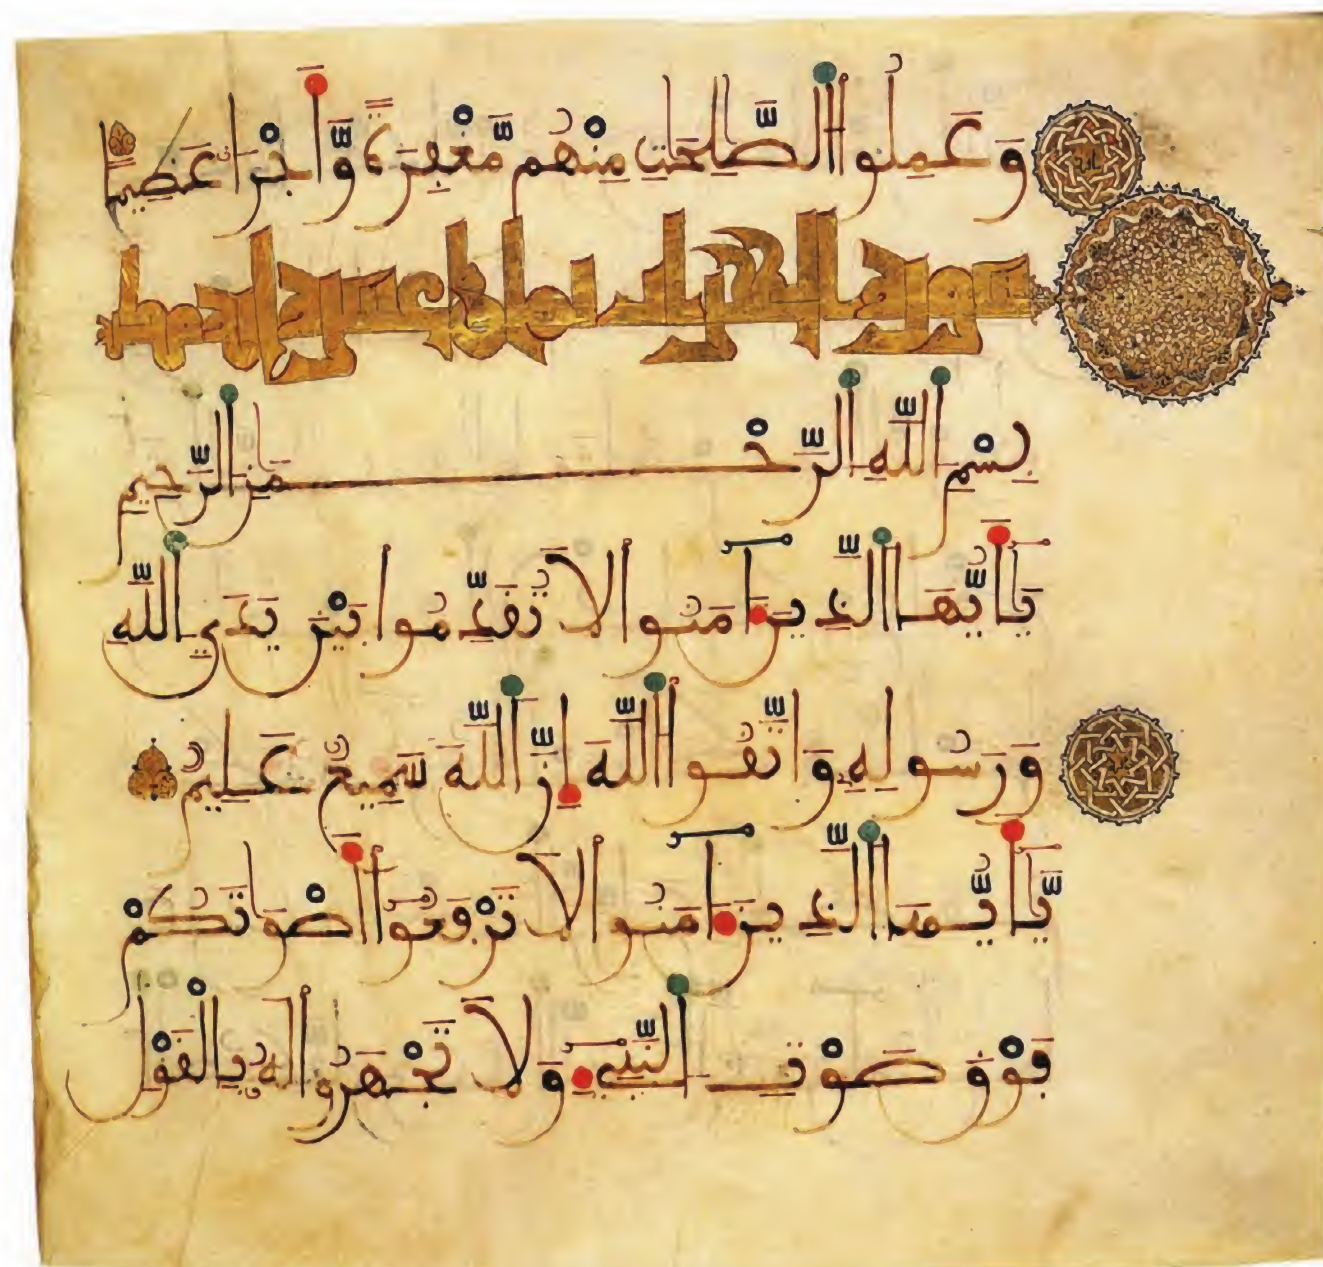 وَعَمِلُوا الصَّٰلِحَٰتِ مِنْهُم مَّغْفِرَةً وَّأَجْرًا عَظِيمًا
سورة الحجرات
بِسْمِ اللَّهِ الرَّحْمَٰنِ الرَّحِيمِ
يَٰأَيُّهَا الَّذِينَ ءَامَنُوا لَا تُقَدِّمُوا بَيْنَ يَدَيِ اللَّهِ
وَرَسُولِهِ وَاتَّقُوا اللَّهَ إِنَّ اللَّهَ سَمِيعٌ عَلِيمٌ
يَّٰأَيُّهَا الَّذِينَ ءَامَنُوا لَا تَرْفَعُوا أَصْوَٰتَكُمْ
فَوْقَ صَوْتِ النَّبِيءِ وَلَا تَجْهَرُوا لَهُ بِالْقَوْلِ